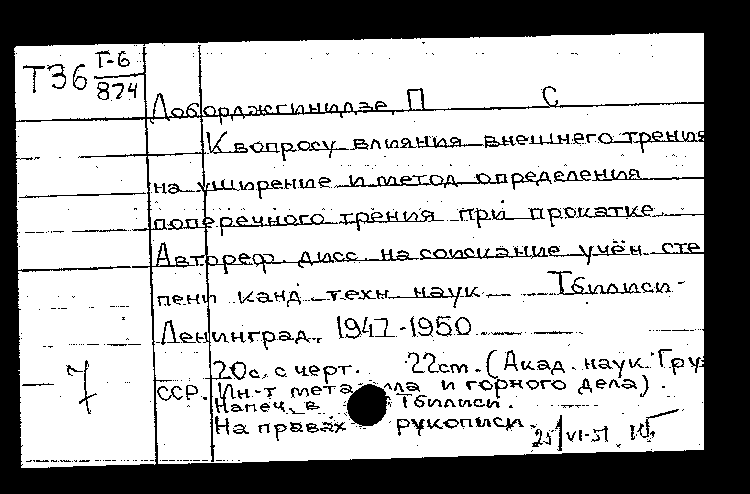 Т36 Г-6
874
Лоборджгинидзе, П С
К вопросу влияния внешнего трения
на уширение и метод определения
поперечного трения при прокатке.
Автореф. дисс. на соискание учён. сте
пени канд. техн. наук. Тбилиси-
Ленинград, 1947-1950
20с. с черт. 22см. (Акад. наук Груз
ССР. Ин-т металла и горного дела).
Напеч. в Тбилиси.
На правах рукописи.
7
25/VI-51.